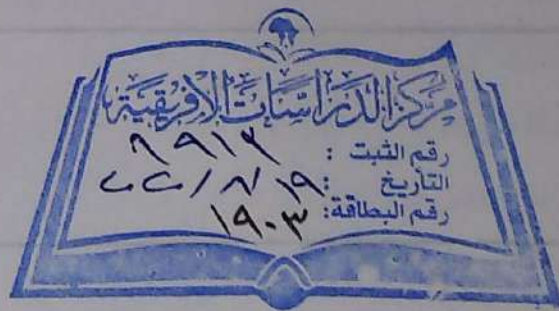 مركز الدراسات الأفريقية
رقم الثبت : ٨٩١٢
التأريخ : ١٩/٨/٢٢
رقم البطاقة: ١٩٠٣